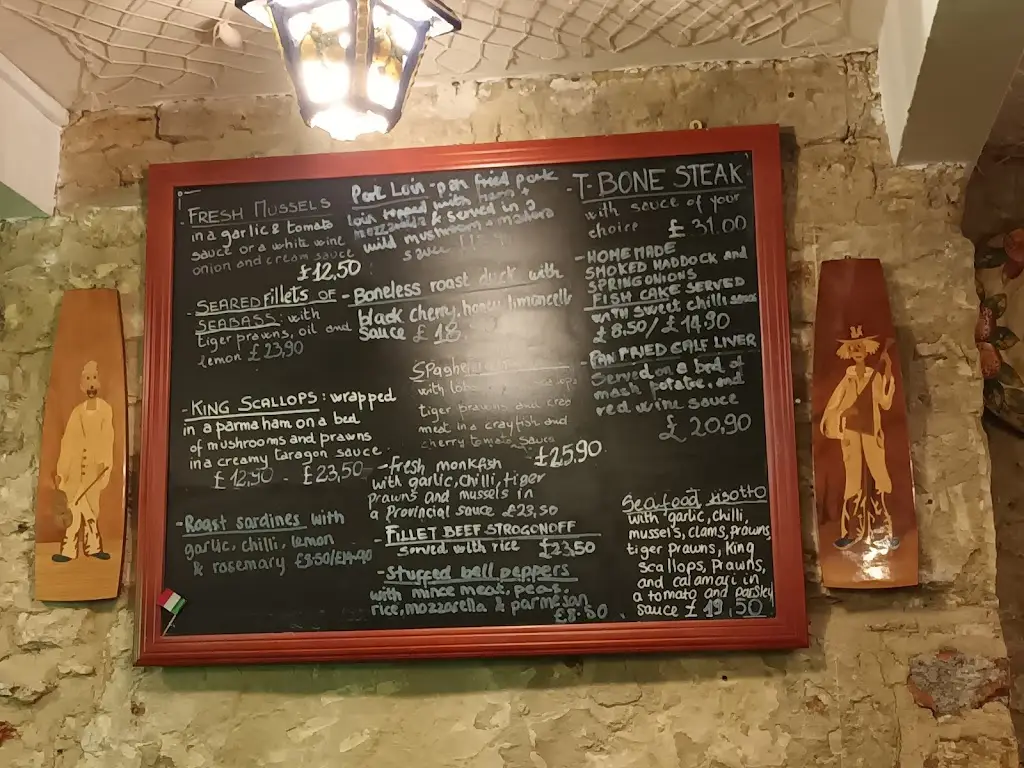 FRESH MUSSELS
in a garlic & tomato
sauce or a white wine
onion and cream sauce
£12.50
- SEARED fillets OF
SEABASS: with
tiger prawns, oil and
lemon £23,90
- KING SCALLOPS: wrapped
in a parma ham on a bed
of mushrooms and prawns
in a creamy taragon sauce
£12,90 - £23,50
- Roast sardines with
garlic, chilli, lemon
& rosemary £8.50/£14.90
Pork Loin - pan fried pork
loin topped with ham +
mozzarella & served in a
wild mushroom + madeira
sauce
- Boneless roast duck with
black cherry, honey, limoncello
sauce £18.
Spaghetti
with
tiger prawns and crab
meat in a crayfish and
cherry tomato sauce
£25,90
- fresh monkfish
with garlic, chilli, tiger
prawns and mussels in
a provincial sauce £23,50
- FILLET BEEF STROGONOFF
served with rice £23,50
- Stuffed bell peppers
with mince meat, peas,
rice, mozzarella & parmesan
£8.50
- T-BONE STEAK
with sauce of your
choice £31.00
- HOMEMADE
SMOKED HADDOCK and
SPRING ONIONS
FISH CAKE SERVED
WITH sweet chilli sauce
£8.50/£14.90
- PAN FRIED CALF LIVER
Served on a bed of
mash potatoe, and
red wine sauce
£20,90
Seafood risotto
with garlic, chilli,
mussels, clams, prawns,
tiger prawns, King
scallops, Prawns,
and calamari in
a tomato and parsley
sauce £19,50